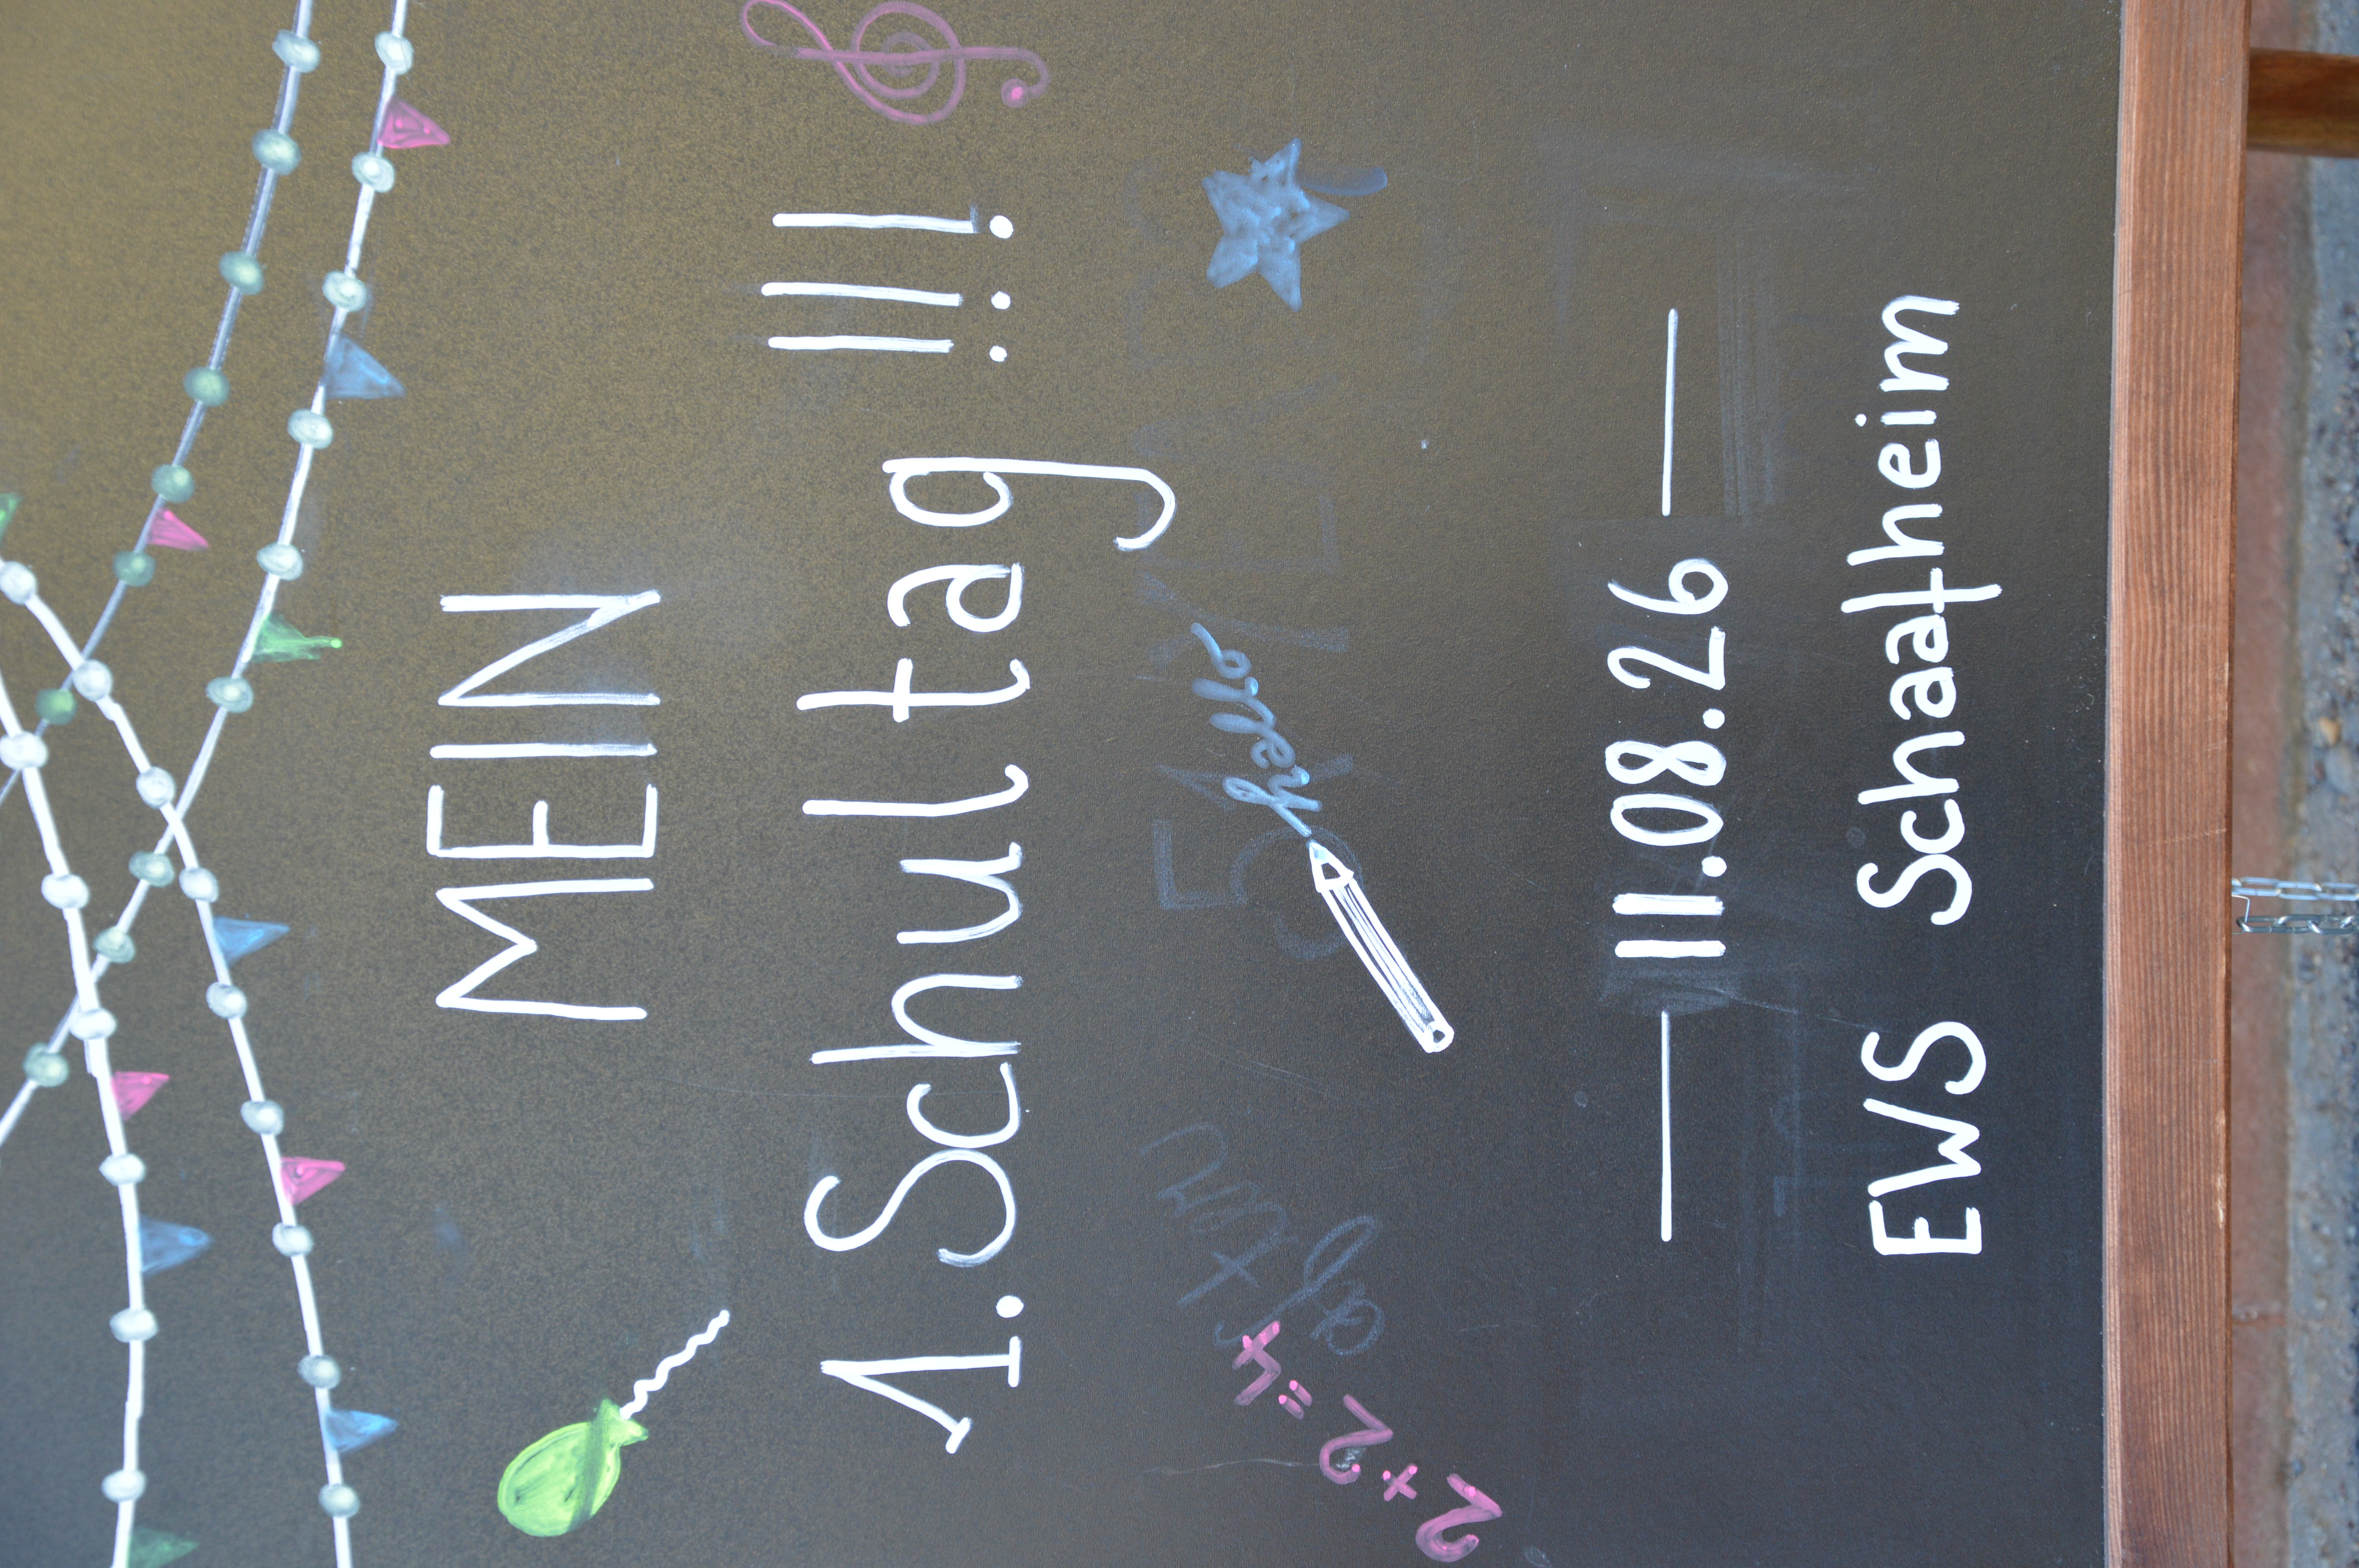 MEIN
1. Schultag !!!
2+2=4
11.08.26
EWS Schaafheim